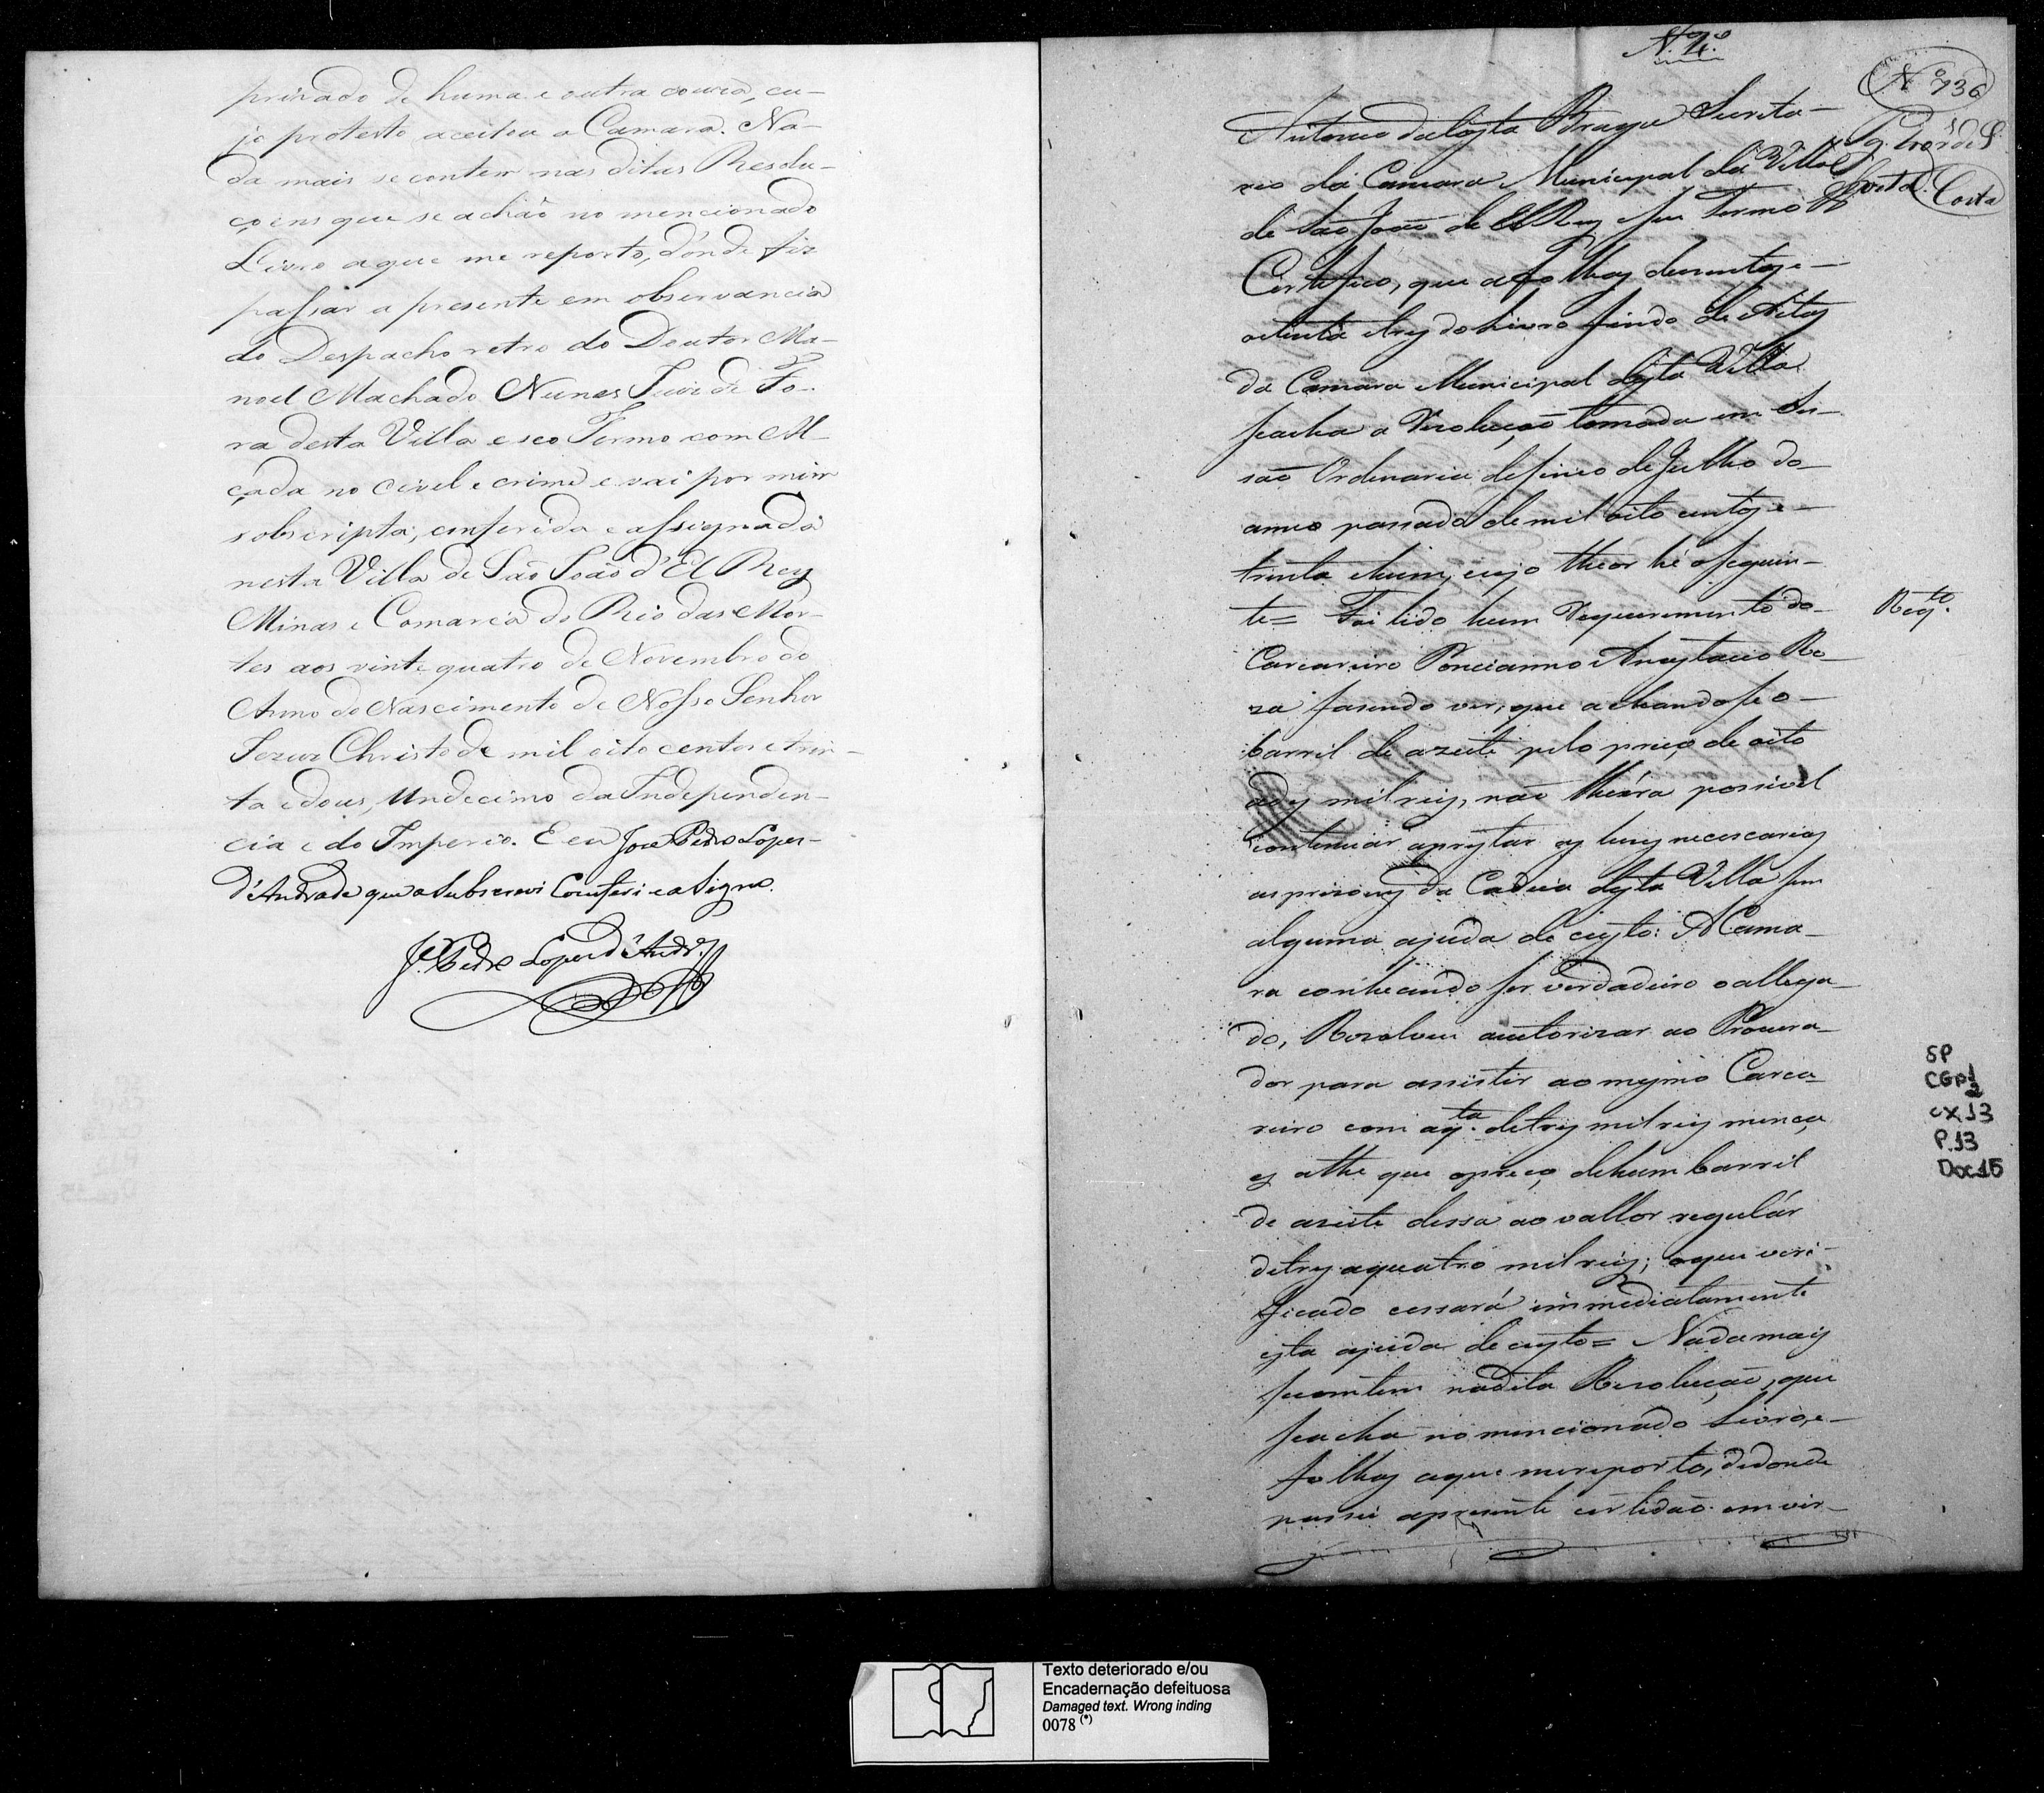 privado de huma e outra couza, cu-
jo protesto aceitou a Camara. Na-
da mais se contem nas ditas Resolu-
çoens que se achão no mencionado
Livro aque me reporto, d'onde fiz
passar a presente em observancia
do Despacho retro do Doutor Ma-
noel Machado Nunes Juiz de Fo-
ra desta Villa e seo Termo com Al-
çada no Civel e crime e vai por mim
sobscripta, conferida e assignada
nesta Villa de São João d'El Rey
Minas e Comarca do Rio das Mor-
tes aos vinte quatro de Novembro do
Anno do Nascimento de Nosso Senhor
Jezus Christo de mil oito centos e trin-
ta e dous, Undecimo da Independen-
cia e do Imperio. E eu Joze Pedro Lopes
d'Andrade que a Subscrevi Conferi e asigno.
Je. Pedro Lopes d'Andr.e
N. 4.o
No 736
Antonio da Costa Braga Secreta-
rio da Camara Municipal da Villa
de São João de ElRey e seu Termo
Costa
Certefico, que afolhas duzentas e
oitenta etres do Livro findo de Actas
da Camara Municipal desta Villa
seacha a Rezolução tomada em Ses-
são Ordenaria de sinco de Julho do
anno passado de mil oito centos e
trinta ehum, cujo theor hé oseguin-
te= Foi lido hum Requerimento do
Reqto.
Carcareiro Poncianno Anastacio Ro-
za fasendo ver, que achandose o
barril de azeite pelo preço de oito
a des mil reis, não lhe éra possivel
continuar aprestar as luzes necescarias
as prizoens da Cadeia desta Villa sem
alguma ajuda de custo: A Cama-
ra conhecendo ser verdadeiro o allega-
do, Rezolveu autorizar ao Procura-
dor para assistir ao mesmo Carca-
reiro com aqta. detres mil reis mença-
es athe que opreço dehum barril
de azeite dessa ao vallor regulár
detres aquatro mil reis; oque veri-
ficado cessará immediatamente
esta ajuda de custo= Nada mais
secontem nadita Rezolução, que
seacha no mencionado Livro, e
folhas aque mereporto, dedonde
passei apresente certidão em vir-
SP
CGP1
2
cx.13
P.13
Doc.15
Texto deteriorado e/ou
Encadernação defeituosa
Damaged text. Wrong inding
0078 (*)